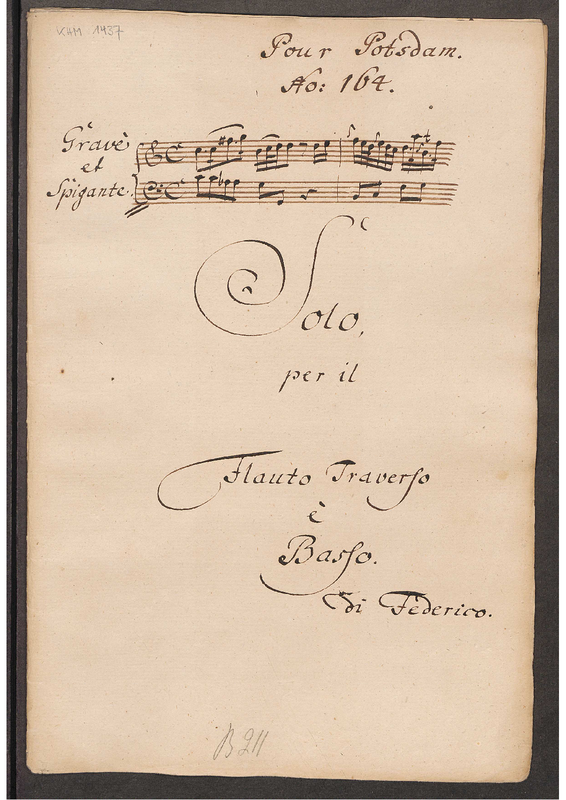 KHM 1437
Pour Potsdam.
No: 164.
Grave
et
Spigante.
Solo,
per il
Flauto Traverso
è
Basso.
di Federico.
B 211